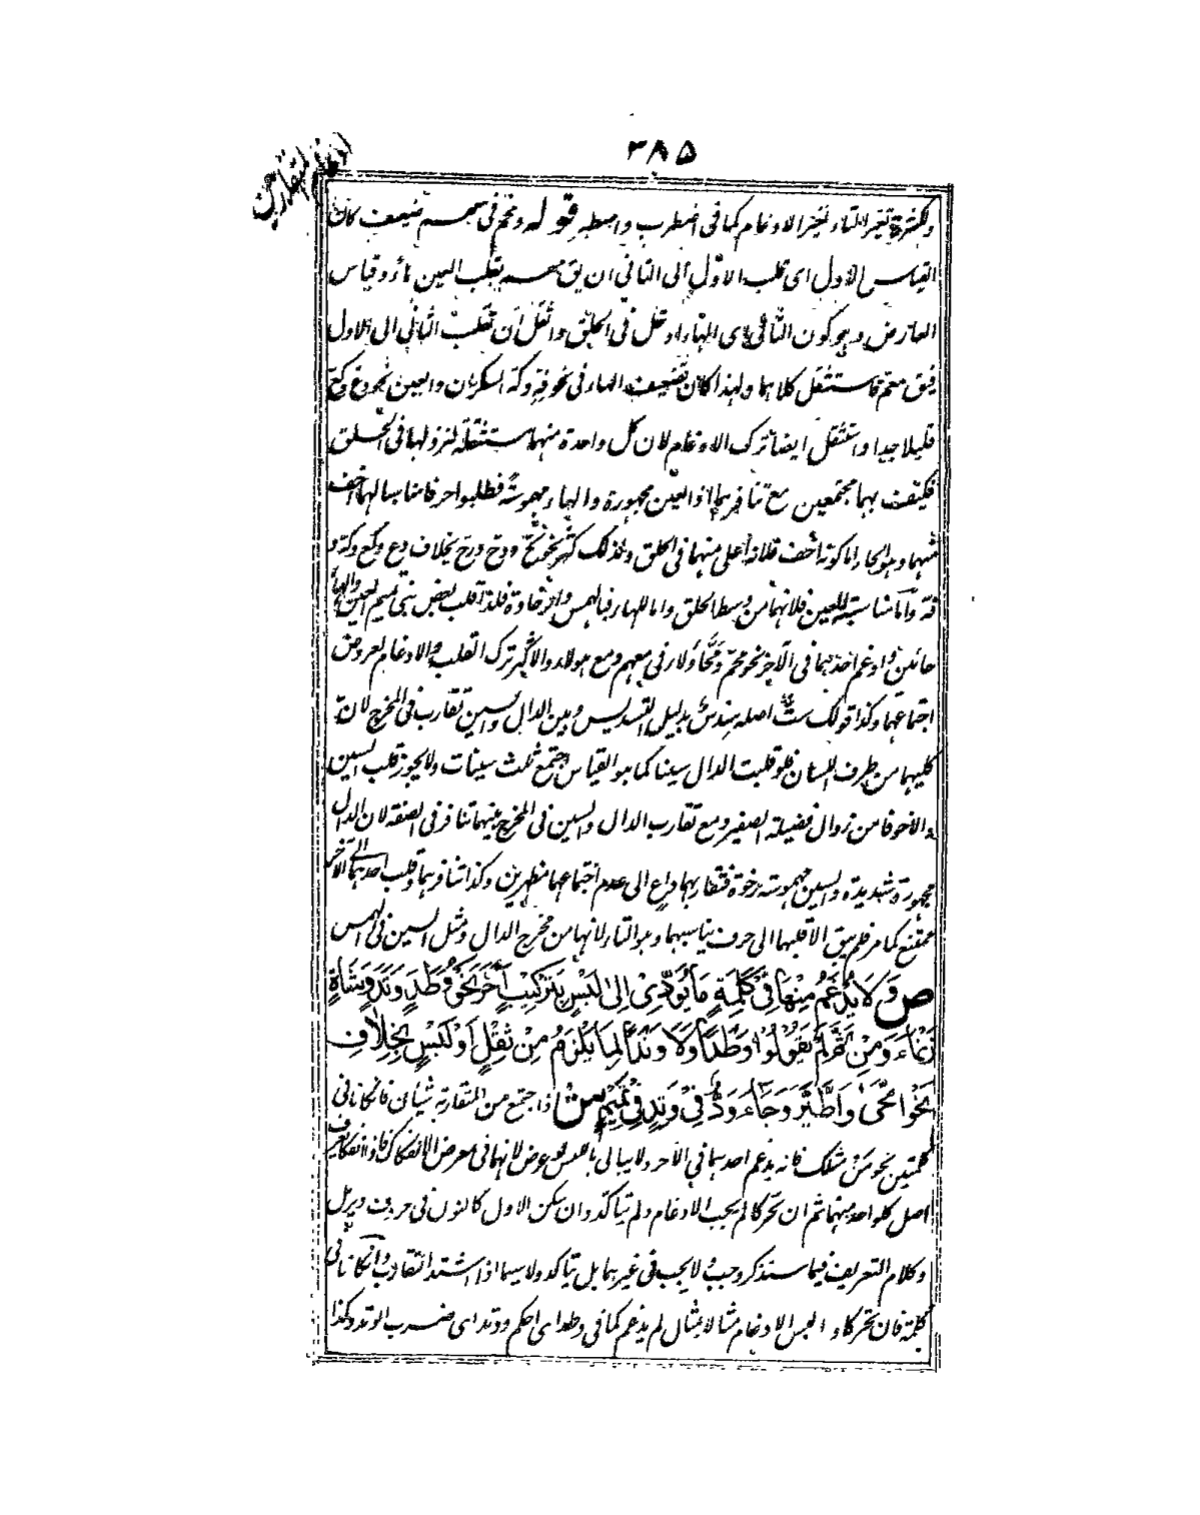 ٣٨٥
ادغام المتقاربين
ولكثرة تغير التاء لغير الادغام كما فى اضطرب واصطبر قوله ومحم فى معهم ضعيف كان
القياس الاول اى قلب الاول الى الثانى ان يق معهم بقلب العين هاء وقياس
العارض وهو كون الثانى اى الهاء ادخل فى الحلق واثقل ان تقلب الثانى الى الاول
فيق معم فاستثقل كلاهما ولهذا كان تضعيف الهاء فى نحو وكه السكران والعين نحو دع وكع
قليلا جدا واستثقل ايضا ترك الادغام لان كل واحدة منهما مستثقلة لنزولها فى الحلق
فكيف بهما مجتمعين مع تنافرهما اذ العين مجهورة والهاء مهموسة فطلبوا حرفا مناسبا لهما اخف
منهما وهو الحاء اما كونه اخف فلانه اعلى منهما فى الحلق ولذلك كثر نحو بح ودح وزح بخلاف دع وكع وكه و
قه واما مناسبته للعين فلانهما من وسط الحلق واما للهاء فبالهمس والرخاوة فلذا قلب بعض بنى تميم العين والهاء
حائين وادغم احدهما فى الآخر نحو محم ومحاولاء فى معهم ومع هؤلاء والاكثر ترك القلب والادغام لعروض
اجتماعهما وكذا قولك ست اصله سدس بدليل التسديس وبين الدال والسين تقارب فى المخرج لان
كليهما من طرف اللسان فلو قلبت الدال سينا كما هو القياس اجتمع ثلث سينات ولا يجوز قلب السين
دالا خوفا من زوال فضيلة الصفير ومع تقارب الدال والسين فى المخرج بينهما تنافر فى الصفة لان الدال
مجهورة شديدة والسين مهموسة رخوة فتقاربهما داع الى عدم اجتماعهما مظهرين وكذا تنافرهما وقلب احدهما الى الآخر
ممتنع كما مر فلم يبق الا قلبهما الى حرف يناسبهما وهو التاء لانها من مخرج الدال ومثل السين فى الهمس
ص وَلَا يُدْغَمُ مِنْهَا فِى كَلِمَةٍ مَا يُؤَدِّى اِلىٰ لَبْسٍ بِتَرْكِيْبٍ آخَرَ نَحْوُ وَطَدٍ وَوَتَدٍ وَشَاةٍ
زَنْمَاءَ وَمِنْ ثَمَّ لَمْ يَقُوْلُوْا وَطْدًا وَلَا وَتْدًا لِمَا يَلْزَمُ مِنْ ثِقَلٍ اَوْ لَبْسٍ بِخِلَافِ
نَحْوِ امَّحَىٰ وَاطَّيَّرَ وَجَاءَ وَدٌّ فِىْ وَتِدٍ فِىْ تَمِيْمٍ ش اذا اجتمع من المتقاربة شيئان فان كانا فى
كلمتين نحو من مثلك فانه يدغم احدهما فى الآخر ولا يبالى باللبس لو عرض لانهما فى معرض الانفكاك فاذا انفكا يعرف
اصل كل واحد منهما ثم ان تحركا لم يجب الادغام ولم يتاكد وان سكن الاول كالنون فى حروف ويرمل
وكلام التعريف فيما سنذكر وجب ولا يجب فى غيرهما بل يتاكد ولا سيما اذا اشتد التقارب وان كانا فى
كلمة فان تحركا والبس الادغام مثالا بمثال لم يدغم كما فى وطد اى احكم ووتد اى ضرب الوتد وكذا